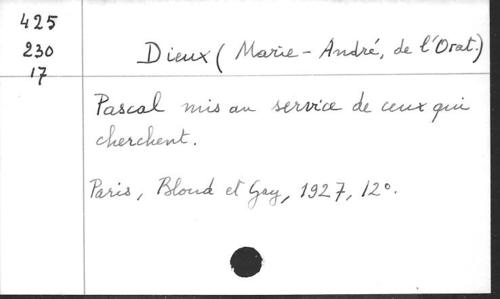 425
230
17
Dieux (Marie-André, de l'Orat.)
Pascal mis au service de ceux qui
cherchent.
Paris, Bloud et Gay, 1927, 12°.